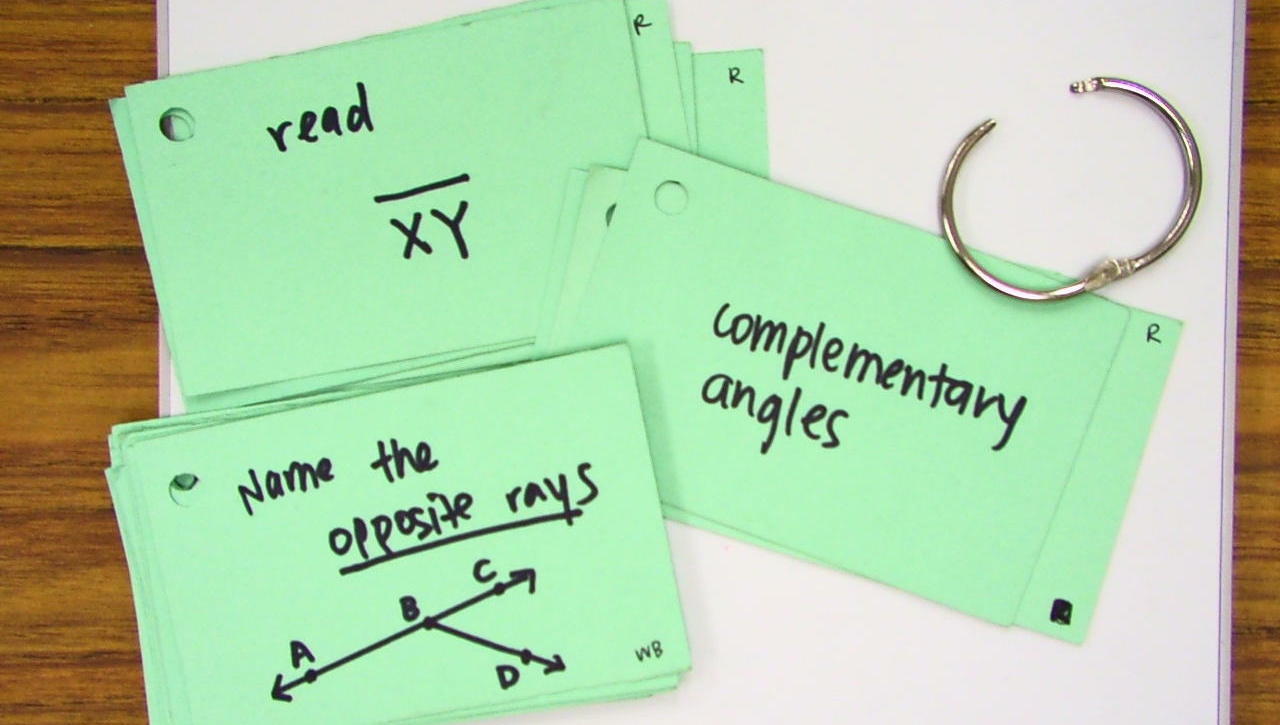 R
R
read
XY
complementary
angles
R
R
Name the
opposite rays
C
B
A
D
WB